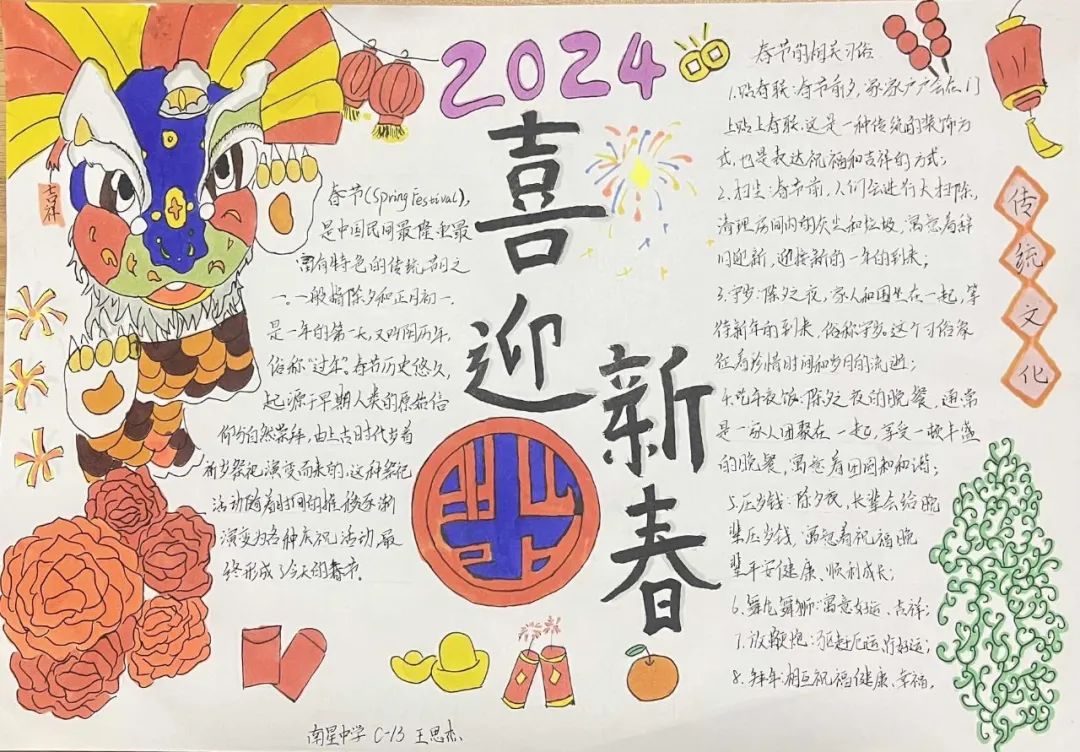 2024
喜
迎
新
春
吉祥
春节(Spring Festival),
是中国民间最隆重最
富有特色的传统节日之
一。一般指除夕和正月初一.
是一年的第一天,又叫阴历年,
俗称"过年".春节历史悠久,
起源于早期人类的原始信
仰与自然崇拜,由上古时代岁首
祈岁祭祀演变而来的,这种祭祀
活动随着时间的推移逐渐
演变为各种庆祝活动,最
终形成了今天的春节.
春节的相关习俗
1.贴春联:春节前夕,家家户户会在门
上贴上春联.这是一种传统的装饰方
式,也是表达祝福和吉祥的方式;
2.扫尘:春节前,人们会进行大扫除,
清理房间内的灰尘和垃圾,寓意着辞
旧迎新,迎接新的一年的到来;
3.守岁:除夕之夜,家人和围坐在一起,等
待新年的到来,俗称守岁.这个习俗象
征着珍惜时间和岁月的流逝;
4.吃年夜饭:除夕之夜的晚餐,通常
是一家人团聚在一起,享受一顿丰盛
的晚餐,寓意着团圆和和谐;
5.压岁钱:除夕夜,长辈会给晚
辈压岁钱,寓意着祝福晚
辈平安健康、顺利成长;
6.舞龙舞狮:寓意好运、吉祥;
7.放鞭炮:驱赶厄运,祈好运;
8.拜年:相互祝福健康、幸福.
传
统
文
化
南星中学 C-13 王思杰